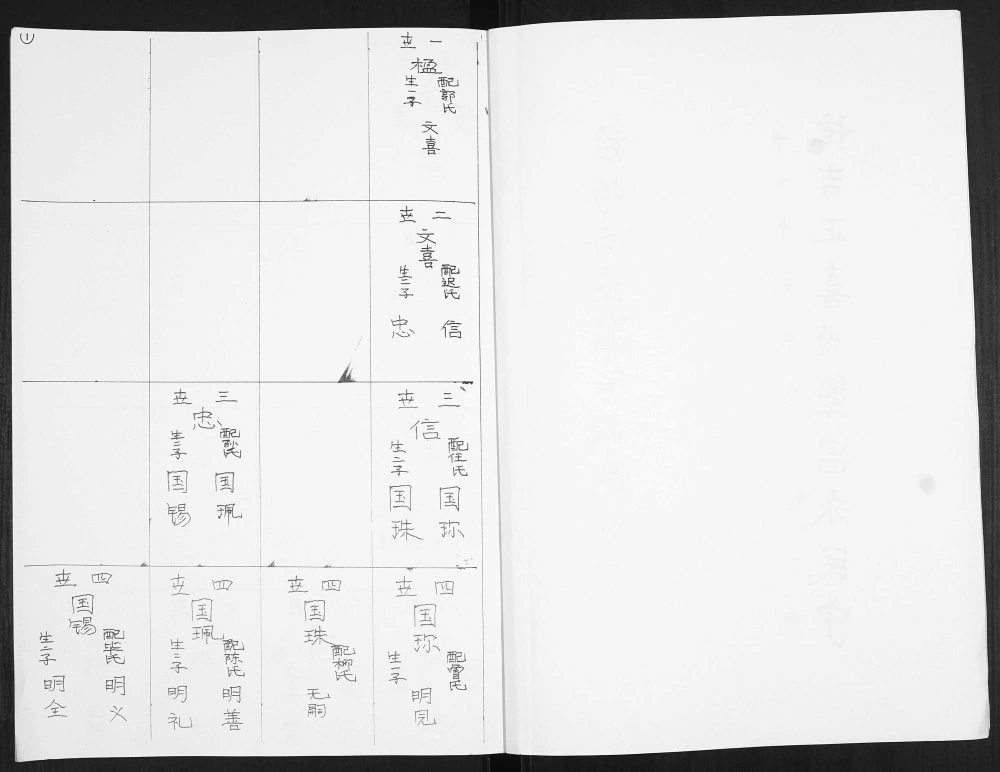 ①
一世
楹
配郭氏
生一子
文喜
二世
文喜
配迟氏
生二子
信
忠
三世
信
配任氏
生二子
国珎
国珠
三世
忠
配孙氏
生二子
国珮
国锡
四世
国珎
配曾氏
生一子
明见
四世
国珠
配柳氏
无嗣
四世
国珮
配陈氏
生二子
明善
明礼
四世
国锡
配张氏
生二子
明义
明全